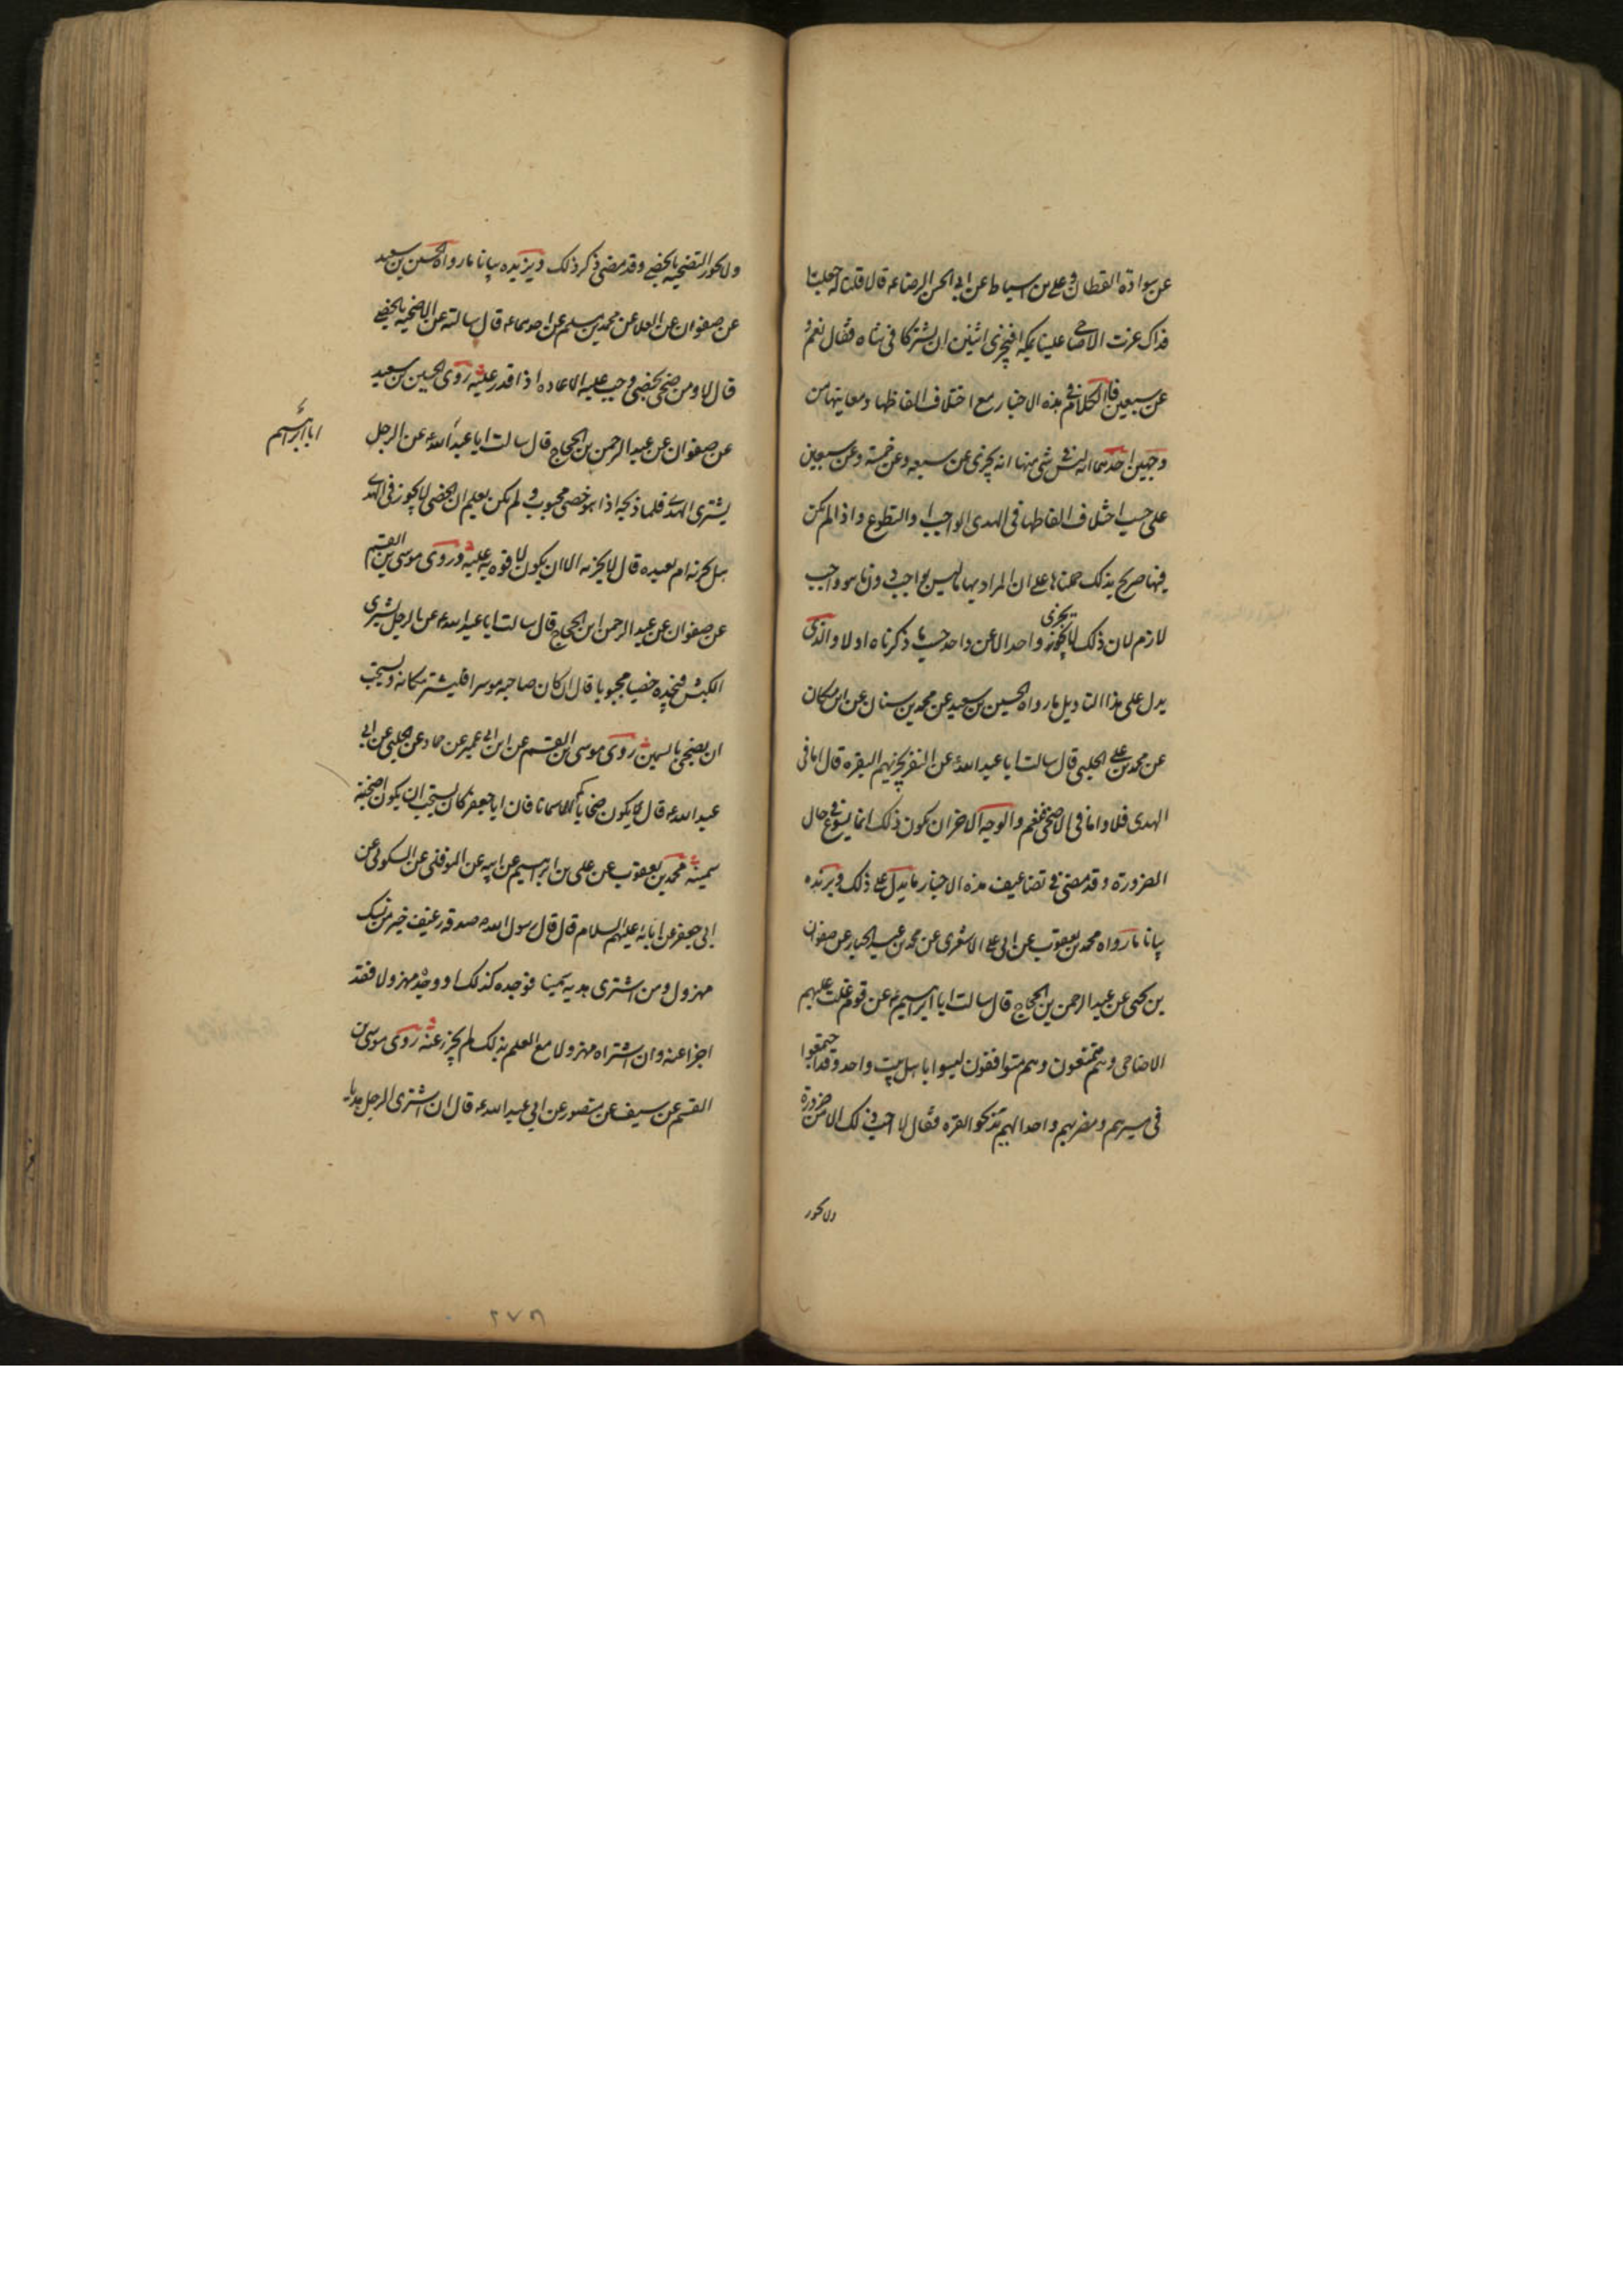 عن سوادة القطان و علي بن اسباط عن ابي الحسن الرضا ع قال قلنا له جعلنا
فداك عزت الاضاحي علينا بمكة افيجزي اثنين ان يشتركا في شاه فقال نعم و
عن سبعين فالكلام في هذه الاخبار مع اختلاف الفاظها و معانيها من
وجهين احدهما انه ليس في شي منها انه يجزي عن سبعه وعن خمسة وعن سبعين
على حسب اختلاف الفاظها في الهدى الواجب او التطوع واذا لم يكن
فيها صريح بذلك حملناها على ان المراد بها ما ليس بواجب دون ما هو واجب
لازم لان ذلك لا يجوز يجزي واحد الا عن واحد حسب ما ذكرناه اولا والذي
يدل على هذا التاويل ما رواه الحسين بن سعيد عن محمد بن سنان عن ابن مسكان
عن محمد بن علي الحلبي قال سالت ابا عبد الله ع عن النفر يجزيهم البقره قال اما في
الهدى فلا واما في الاضحى فنعم والوجه الاخر ان يكون ذلك انما يسوغ في حال
الضرورة وقد مضى في تضاعيف هذه الاخبار ما يدل على ذلك ويزيده
بيانا ما رواه محمد بن يعقوب عن ابي علي الاشعري عن محمد بن عبد الجبار عن صفوان
بن يحيى عن عبد الرحمن بن الحجاج قال سالت ابا ابراهيم ع عن قوم غلت عليهم
الاضاحي وهم متمتعون وهم متوافقون ليسوا باهل بيت واحد وقد اجتمعوا
في مسيرهم ومضربهم واحد الهم ان يذبحوا البقره فقال لا احب ذلك الا من ضرورة
ولا يجوز
ولا يجوز التضحيه بالخصي وقد مضى ذكر ذلك ويزيده بيانا ما رواه الحسين بن سعيد
عن صفوان عن العلا عن محمد بن مسلم عن احدهما ع قال سالته عن الاضحيه بالخصي
قال لا ومن ضحى بخصي وجب عليه الاعاده اذا قدر عليه روى الحسين بن سعيد
عن صفوان عن عبد الرحمن بن الحجاج قال سالت ابا عبد الله ع عن الرجل
ابا ابراهيم
يشتري الهدى فلما ذبحه اذا هو خصي مجبوب و لم يكن يعلم ان الخصي لا يجوز في الهدى
هل يجزيه ام يعيده قال لا يجزيه الا ان يكون لا قوه به عليه و روى موسى بن القسم
عن صفوان عن عبد الرحمن ابن الحجاج قال سالت ابا عبد الله ع عن الرجل يشتري
الكبش فيجده خصيا مجبوبا قال ان كان صاحبه موسرا فليشتر مكانه ويستحب
ان يضحى بالسمين روى موسى بن القسم عن ابن ابي عمير عن حماد عن الحلبي عن ابي
عبد الله ع قال يكون ضحاياكم سمانا فان ابا جعفر ع كان يستحب ان يكون اضحيته
سمينة محمد بن يعقوب عن علي بن ابراهيم عن ابيه عن النوفلي عن السكوني عن
ابي جعفر عن ابائه عليهم السلام قال قال رسول الله ص صدقة رغيف خير من نسك
مهزول ومن اشترى هديه سمينا فوجده كذلك او وجده مهزولا فقد
اجزا عنه وان اشتراه مهزولا مع العلم بذلك لم يجز عنه روى موسى بن
القسم عن سيف عن منصور عن ابي عبد الله ع قال ان اشترى الرجل هديا